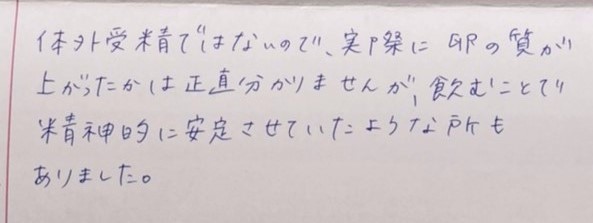 体外受精ではないので、実際に卵の質が
上がったかは正直分かりませんが、飲むことで
精神的に安定させていたような所も
ありました。